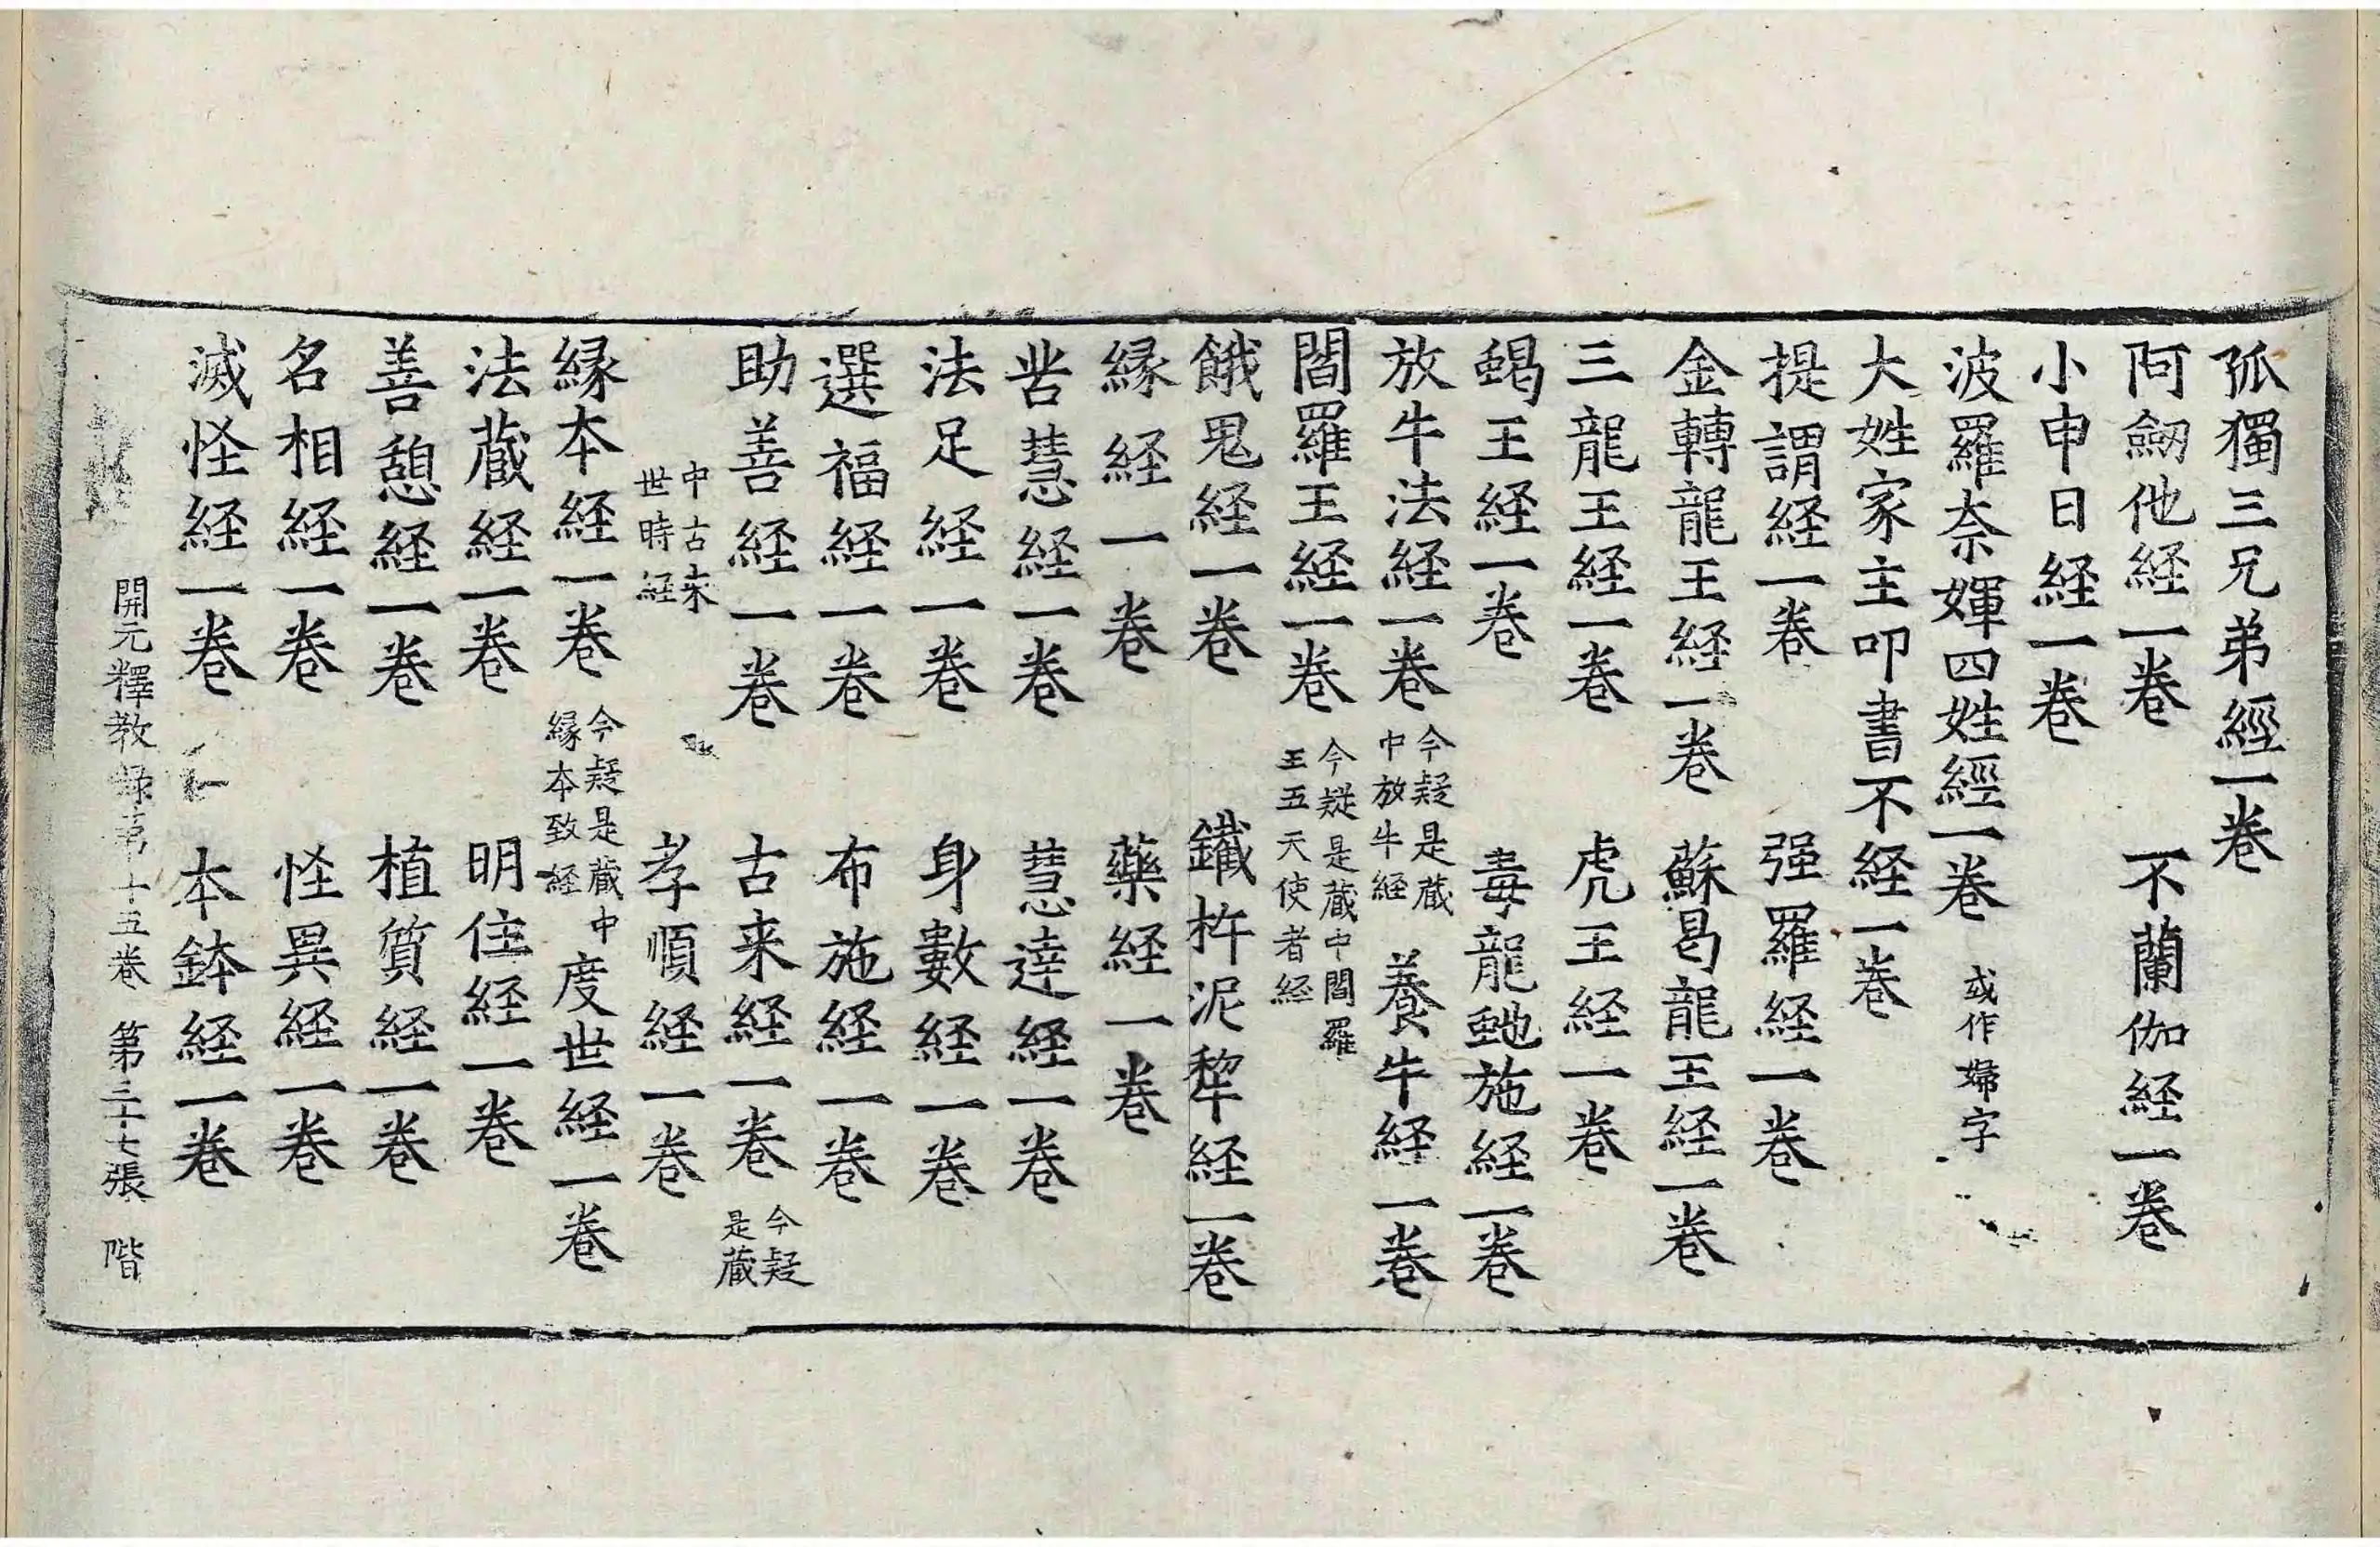 孤獨三兄弟經一卷
阿㔁他経一卷　不蘭伽経一卷
小申日経一卷
波羅奈媈四姓經一卷 或作婦字
大姓家主叩書不経一卷
提謂経一卷　强羅経一卷
金轉龍王経一卷　蘇曷龍王経一卷
三龍王経一卷　虎王経一卷
蝎王経一卷　毒龍虵施経一卷
放牛法経一卷 今疑是蔵中放牛経　養牛経一卷
閻羅王経一卷 今疑是蔵中閻羅王五天使者経
餓鬼経一卷　鐵杵泥犂経一卷
縁経一卷　藥経一卷
咎慧経一卷　慧達経一卷
法足経一卷　身數経一卷
選福経一卷　布施経一卷
助善経一卷　古来経一卷 今疑是蔵
中古来世時経　孝順経一卷
縁本経一卷 今疑是蔵中縁本致経　度世経一卷
法蔵経一卷　明住経一卷
善憩経一卷　植質経一卷
名相経一卷　怪異経一卷
滅怪経一卷　本鉢経一卷
開元釋教録第十五卷　第三十七張　階